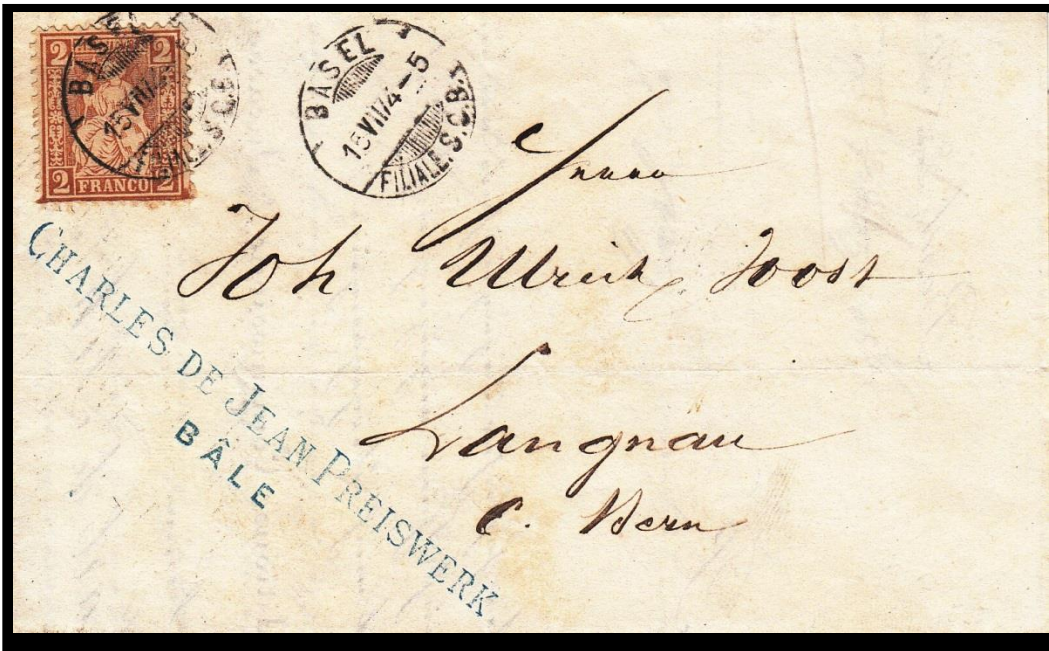 2 2
2 FRANCO 2
BASEL
15 VII 74-5
FILIALE.S.C.B.
BASEL
15 VII 74-5
FILIALE.S.C.B.
Joh. Ulrich Joost
Langnau
C. Bern
CHARLES DE JEAN PREISWERK
BÂLE